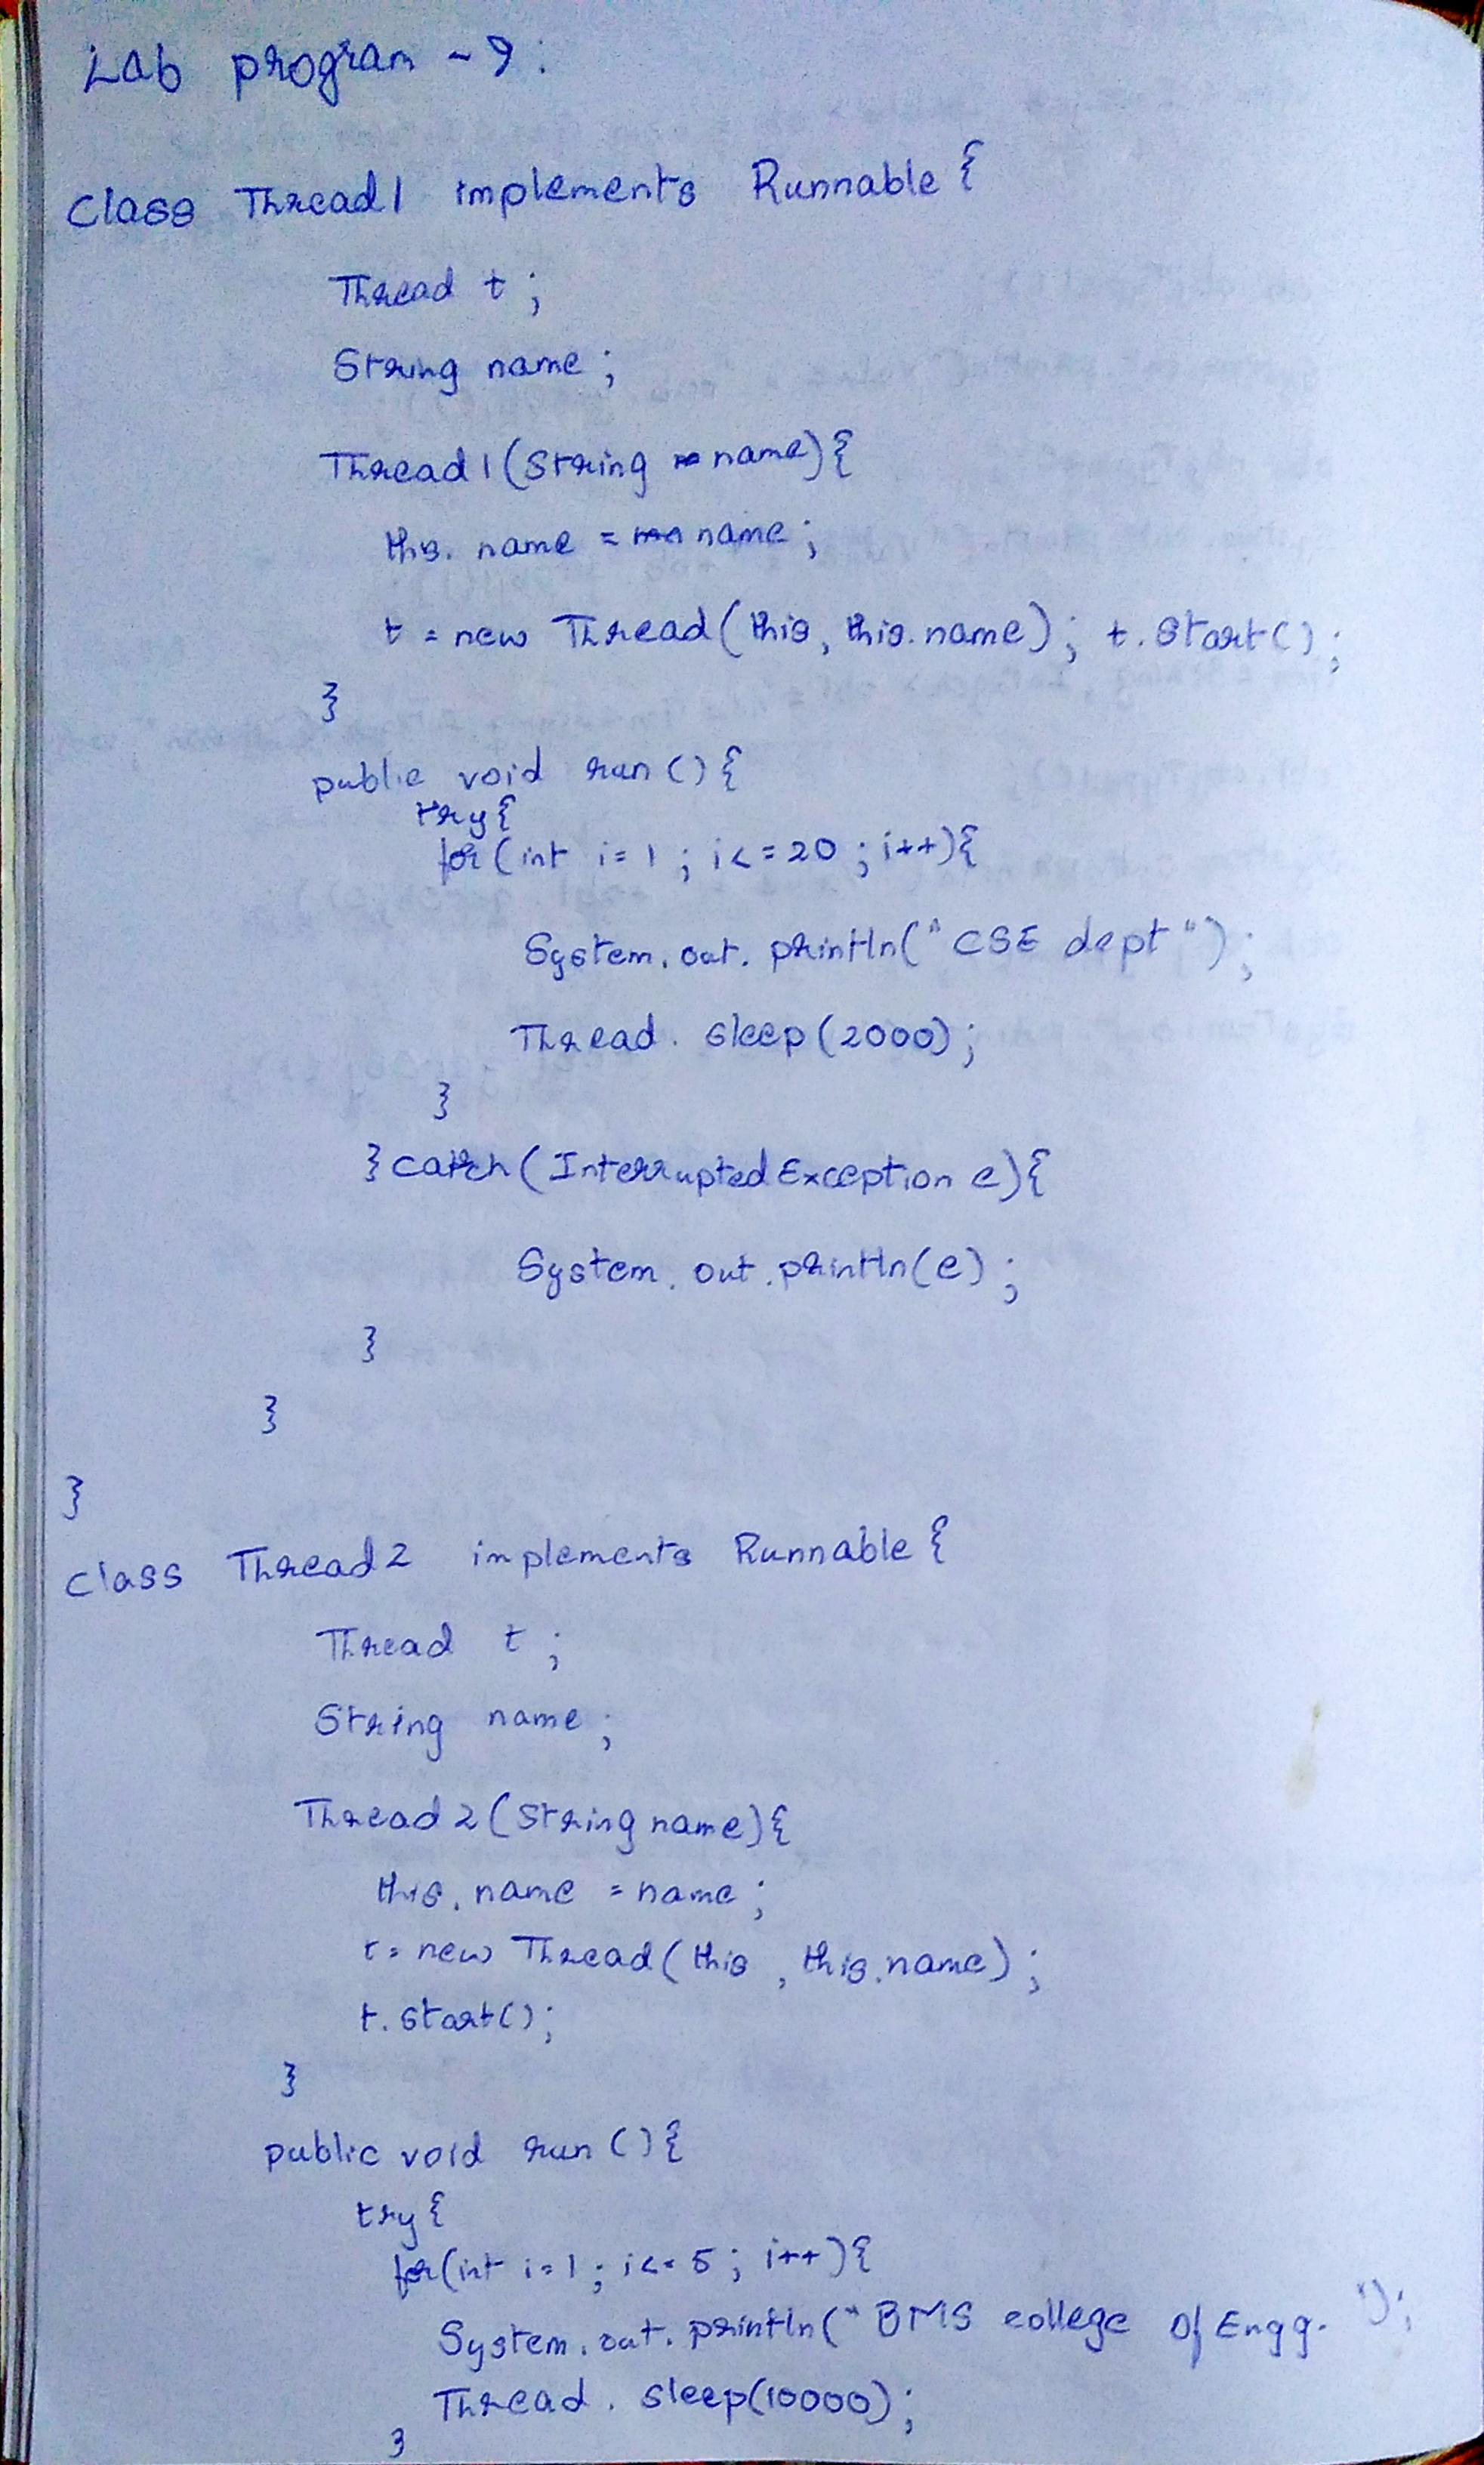 Lab program - 9:
Class Thread1 implements Runnable {
Thread t ;
String name ;
Thread1 (String name) {
this. name = name ;
t = new Thread( this, this.name) ; t. Start( ) ;
}
public void run () {
try {
for ( int i = 1 ; i <= 20 ; i++) {
System. out. println(" CSE dept ") ;
Thread. Sleep (2000) ;
}
} catch ( InterruptedException e) {
System. out. println(e) ;
}
}
}
class Thread2 implements Runnable {
Thread t ;
String name ;
Thread2 ( String name) {
this. name = name ;
t = new Thread ( this , this.name) ;
t. start( ) ;
}
public void run () {
try {
for (int i = 1 ; i <= 5 ; i++ ) {
System. out. println (" BMS college Of Engg. ") ;
Thread. sleep(10000) ;
}